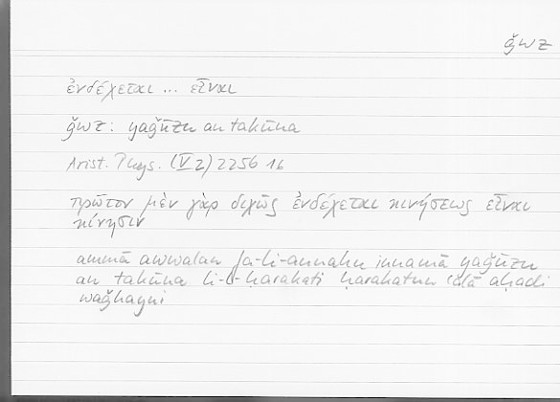 ǧwz
ἐνδέχεται ... εἶναι
ǧwz: yaǧūzu an takūna
Arist. Phys. (V 2) 225b 16
πρῶτον μὲν γὰρ διχῶς ἐνδέχεται κινήσεως εἶναι
κίνησιν
ammā awwalan fa-li-annahu innamā yaǧūzu
an takūna li-l-ḥarakati ḥarakatun ʿalā aḥadi
waǧhayni